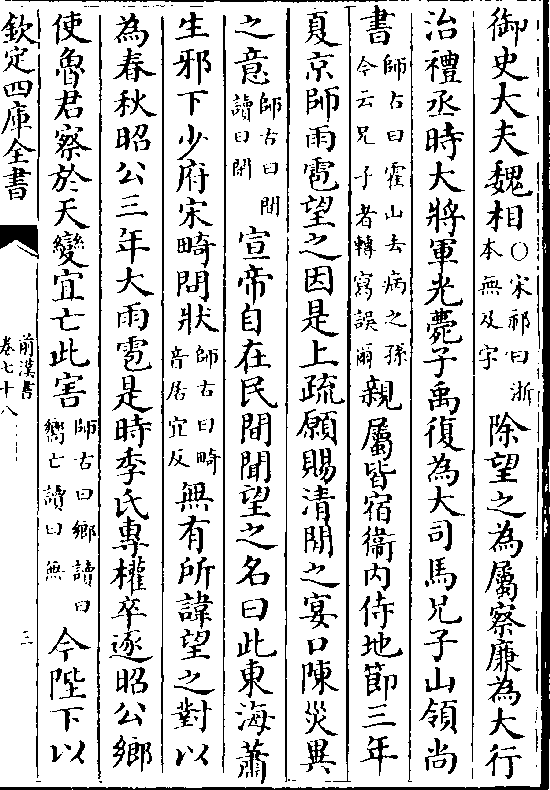 御史大夫魏相○宋祁曰浙本無及字除望之為屬察廉為大行
治禮丞時大將軍光薨子禹復為大司馬兄子山領尚
書師古曰霍山去病之孫今云兄子者轉寫誤爾親屬皆宿衞內侍地節三年
夏京師雨雹望之因是上疏願賜清閒之宴口陳災異
之意師古曰閒讀曰閑宣帝自在民間聞望之名曰此東海蕭
生邪下少府宋畸問狀師古曰畸音居宜反無有所諱望之對以
為春秋昭公三年大雨雹是時季氏專權卒逐昭公鄉
使魯君察於天變宜亡此害師古曰鄉讀曰嚮亡讀曰無今陛下以
欽定四庫全書
前漢書
卷七十八
三